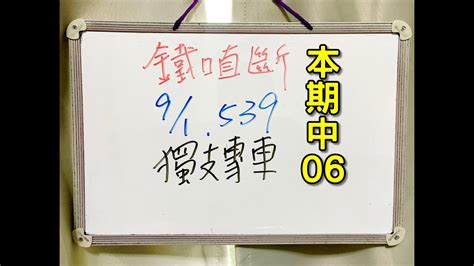 鐵口直斷
9/1.539
獨支專車
本期中06